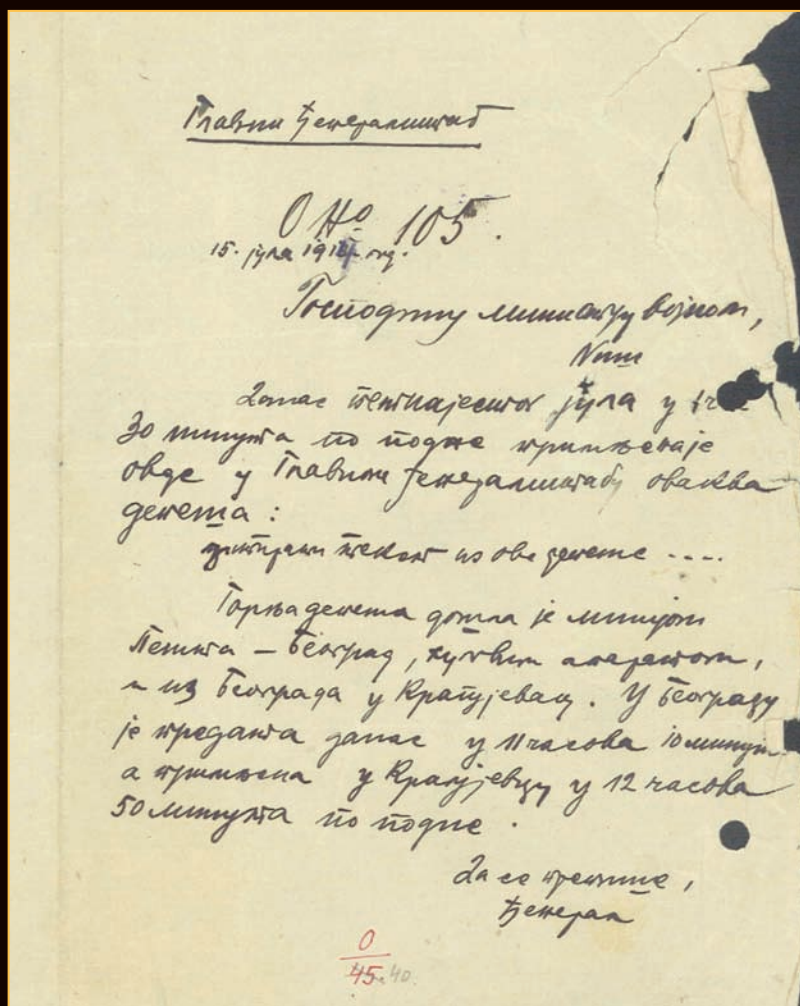 Главни Ђенералштаб
О Но 105.
15. јула 1914. год.
Господину министру војном,
Ниш
Данас петнајестог јула у 1 час
30 минута по подне примљена је
овде у Главном Ђенералштабу оваква
депеша :
цитирати текст из ове депеше ....
Горња депеша дошла је линијом
Пешта – Београд, апаратом,
и из Београда у Крагујевац. У Београду
је предата данас у 11 часова 10 минута
а примљена у Крагујевцу у 12 часова
50 минута по подне.
Ђенерал
0
45. 40.